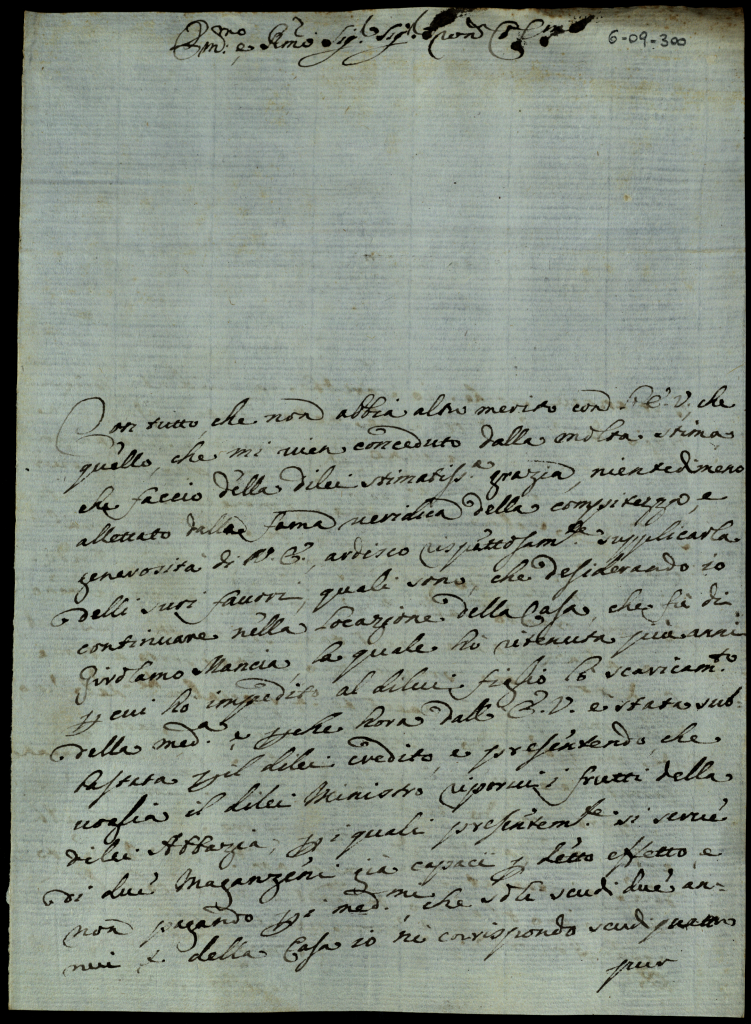 Em.mo e R.mo Sig.r Sig.r
6-09-300
Con tutto che non abbia altro merito con l'E.V. che
quello, che mi vien conceduto dalla molta stima
che faccio della dilei stimatiss.a grazia, nientedimeno
allettato dalla fama veridica della compitezza, e
generosità di V.E., ardisco rispettosam.te supplicarla
delli suoi favori, quali sono, che desiderando io
continuare nella locazione della Casa, che fù di
Girolamo Mancia, la quale hò ritenuta più anni
p cui ho impedito al dilui figlio lo scaricam.to
della med.a e pche hora dall' E.V. è stata sub-
hastata p il dilei credito, e presentendo, che
voglia il dilei Ministro riporvi i frutti della
dilei Abbazia, p i quali presentem.te si serve
di due Maganzeni già capaci p detto effetto, e
non pagando p i med.mi che soli scudi due an-
nui, e della Casa io ne corrispondo scudi quattro
pur